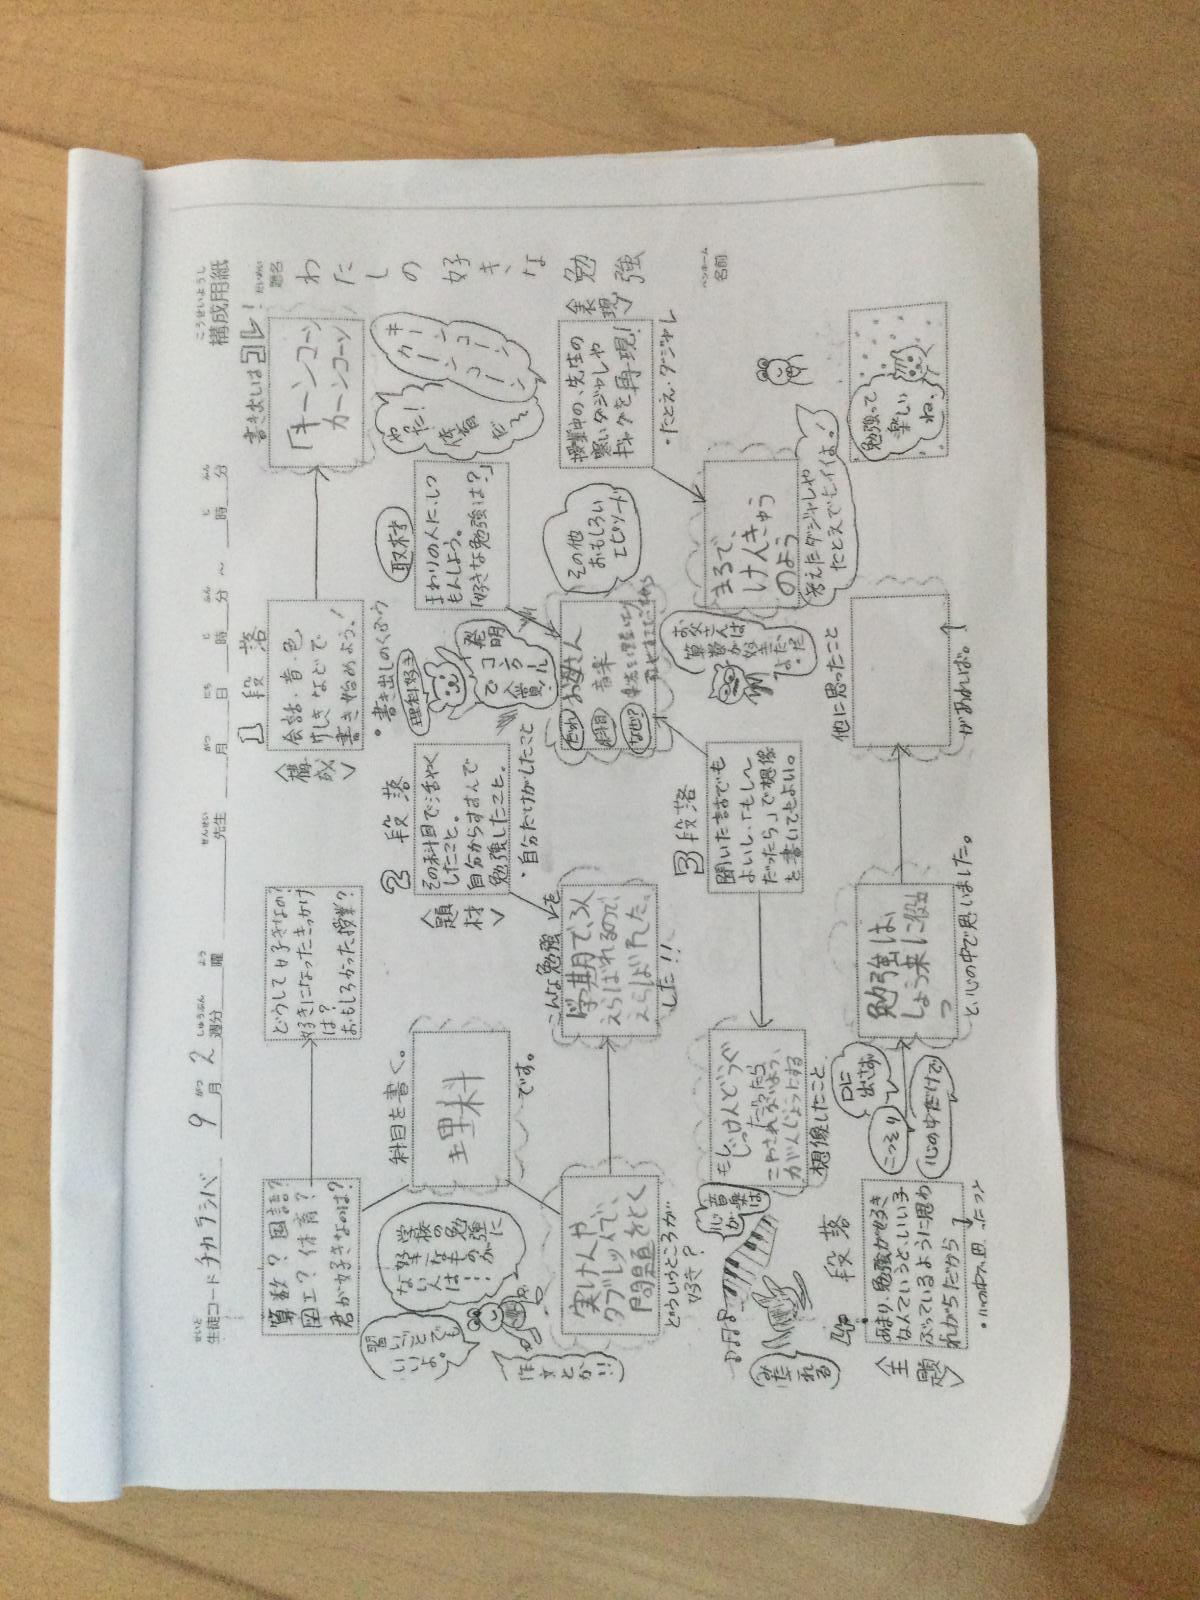 こうせいようし
構成用紙
だいめい
題名
わたしの好きな勉強
ペンネーム
名前
せいと
生徒コード チカラシバ 9 がつ 月 2 しゅうぶん 週分 よう 曜 せんせい 先生 がつ 月 にち 日 じ 時 ふん 分 ~ じ 時 ふん 分
書き出しはコレ!
「キーンコーン
カーンコーン
キーンコーン
カーンコーン
やった!
体育
だぞ
1段落
〈構成〉
会話・音・色
・などで
書き始めよう!
・書き出しのくふう
どうして好きなの?
好きになったきっかけ
は?
おもしろかった授業?
算数?国語?
図工?体育?
君が好きなのは?
科目を書く。
理科
です。
学校の勉強に
好きなものが
ない人は……
習いごとでも
いいよ。
作文とか!!
取材
まわりの人に、しつ
もんしよう。
「好きな勉強は?」
理科好き
発明
コンクール
で入賞
2段落
〈題材〉
その科目で活やく
したこと。
自分からすすんで
勉強したこと。
・自分だけがしたこと
こんな勉強を
学期で、3人
えらばれるので、
えらばれた。
した!!
実けんや
タブレットで、
問題をとく
どういうところが
好き?
〈表現〉
授業中の、先生の
寒いダジャレや
ギャグを再現!
・たとえ・ダジャレ
その他
おもしろい
エピソード
だれ お母さん
科目 音楽
なぜ?
まるで、
けんきゅう
のよう
考えたダジャレや
たとえでもイイよ!
お父さんは
算数が好き
だ
3段落
聞いた話でも
よいし、「もし〜
だったら」で想像
を書いてもよい。
もしじっけんどうぐ
だったら
こわされないよう、
がんじょうにする
想像したこと
音楽は
心が
みだれる
勉強って
楽しい
ね、
他に思ったこと
があれば。
勉強は、
しょう来に役立
つ
と心の中で思いました。
口に
出さず
こっそり
心の中だけで
4段落
〈主題〉
あまり、勉強が好き
なんていうと、いい子
ぶっているように思わ
れがちだから
・心の中で思ったこと